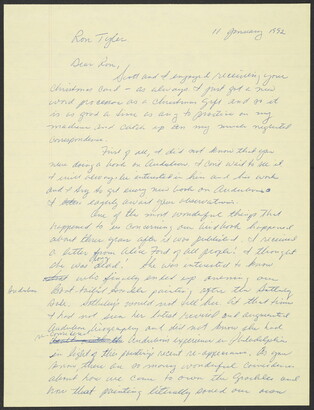 11 January 1992
Ron Tyler
Dear Ron,
Scott and I enjoyed receiving your
Christmas card - as always. I just got a new
word processor as a Christmas gift and so it
is as good a time as any to practice on my
machine and catch up on my much neglected
correspondence.
First of all, I did not know that you
were doing a book on Audubon. I can't wait to see it.
I must always be interested in him and his work
and I try to get every new book on Audubon.
I eagerly await your observations.
One of the most wonderful things that
happened to us concerning our book happened
about three years after it was published. I received
a letter from Alice Ford (of all people! I thought
she was dead). She was interested to know
who finally ended up owning our
Boat-tailed Grackle painting, after the Sotheby
sale. Sotheby's would not tell her. At that time
I had not seen her latest revised and augmented
Audubon biography and did not know she had
Audubon's experience in Philadelphia
in light of the painting's recent re-appearance. As you
know there are so many wonderful coincidences
about how we came to own the Grackles and
how that painting literally saved our own
Audubon